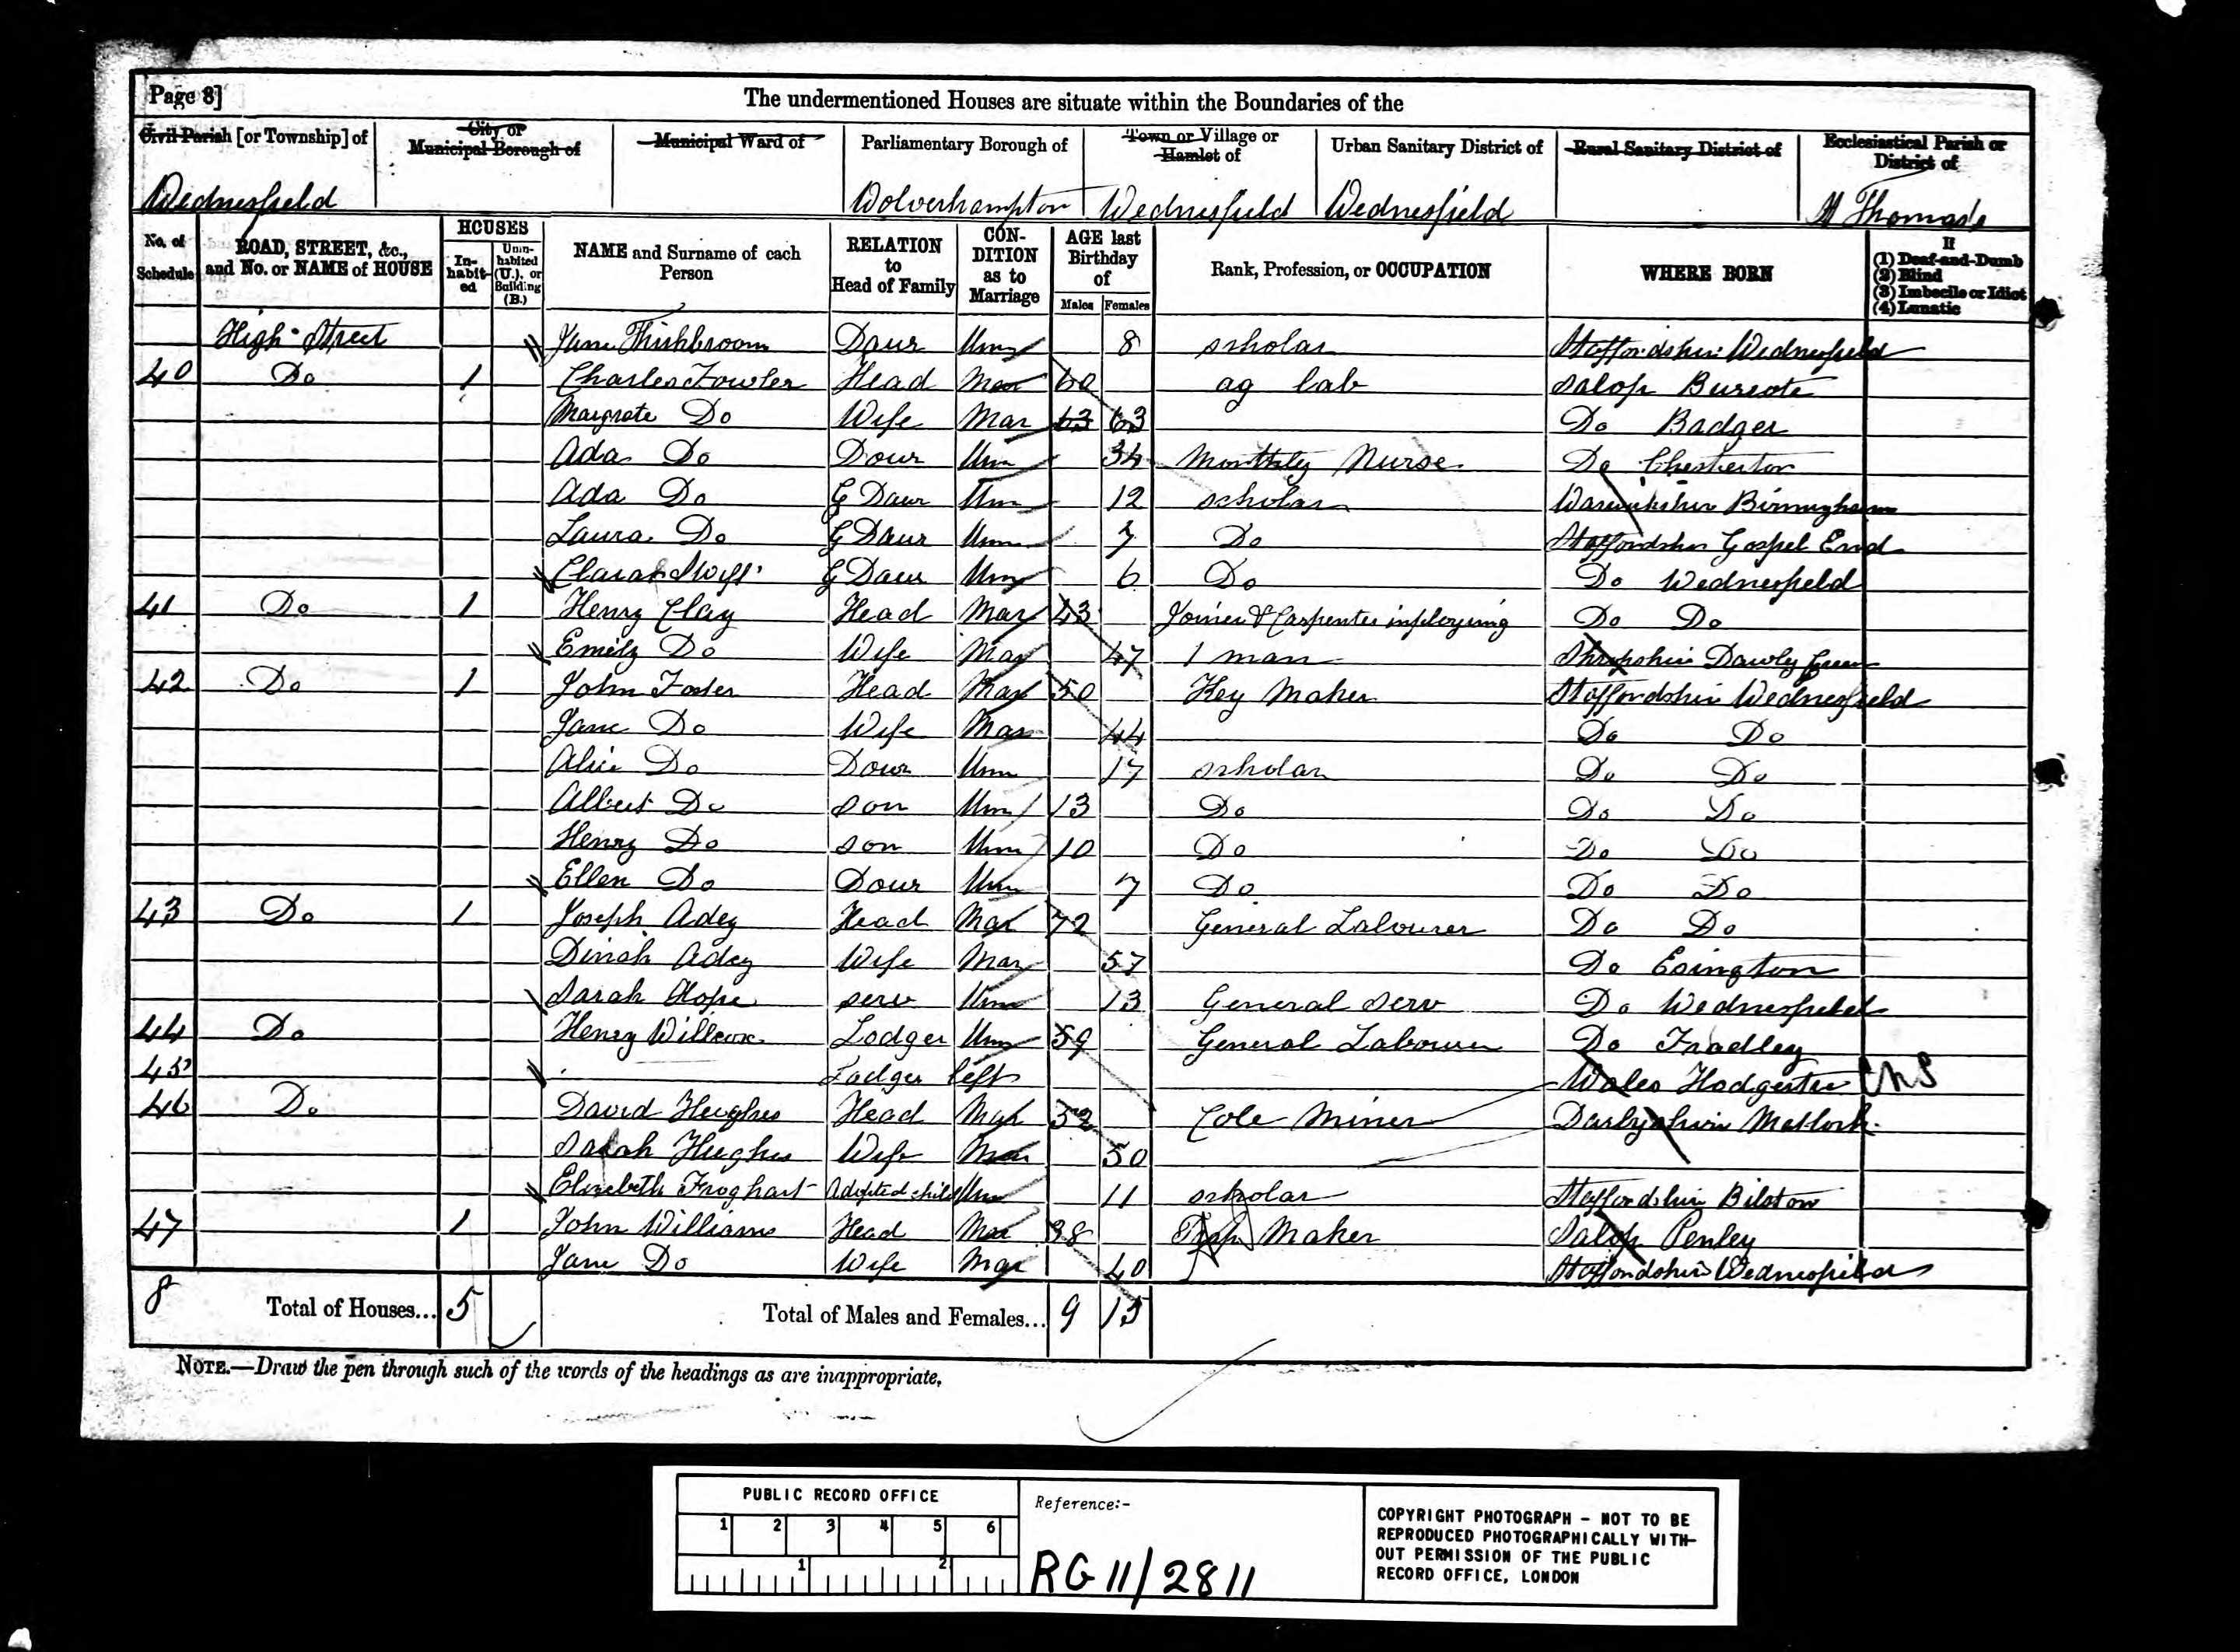 Page 8]
The undermentioned Houses are situate within the Boundaries of the
Civil Parish [or Township] of
City or Municipal Borough of
Municipal Ward of
Parliamentary Borough of
Town or Village or Hamlet of
Urban Sanitary District of
Rural Sanitary District of
Ecclesiastical Parish or District of
Wednesfield Wolverhampton Wednesfield Wednesfield St Thomas's
No. of Schedule
ROAD, STREET, &c., and No. or NAME of HOUSE
HOUSES
In-habit-ed
Unin-habited (U.), or Building (B.)
NAME and Surname of each Person
RELATION to Head of Family
CON-DITION as to Marriage
AGE last Birthday of
Males Females
Rank, Profession, or OCCUPATION
WHERE BORN
If
(1) Deaf-and-Dumb
(2) Blind
(3) Imbecile or Idiot
(4) Lunatic
High Street Jane Daur Unm 8 scholar Staffordshire Wednesfield
40 Do 1 Charles Fowler Head Mar 60 ag lab Salop Burcote
Margrate Do Wife Mar 63 63 Do Badger
Ada Do Dour Unm 34 Monthly Nurse Do Chesterton
Ada Do G Daur Unm 12 scholar Warwickshire Birmingham
Laura Do G Daur Unm 7 Do Staffordshire Gospel End
G Daur Unm 6 Do Do Wednesfield
41 Do 1 Henry Clay Head Mar 43 Joiner & Carpenter imploying Do Do
Emily Do Wife Mar 47 1 man Shropshire Dawly Green
42 Do 1 John Foster Head Mar 50 Key Maker Staffordshire Wednesfield
Jane Do Wife Mar 44 Do Do
Alice Do Dour Unm 17 scholar Do Do
Albert Do son Unm 13 Do Do Do
Henry Do son Unm 10 Do Do Do
Ellen Do Dour Unm 7 Do Do Do
43 Do 1 Joseph Adey Head Mar 72 General Labourer Do Do
Dinah Adey Wife Mar 57 Do Esington
Sarah Hope serv Unm 13 General Serv Do Wednesfield
44 Do Henry Willcox Lodger Unm 59 General Labourer Do Fradley
45 Lodger left Wales Hodgeston
46 Do David Heughes Head Mar 52 Cole Miner Darbyshire Matlock
Sarah Hughes Wife Mar 50
Elizabeth Froghart Adopted child Unm 11 scholar Staffordshire Bilston
47 1 John Williams Head Mar 38 Trap Maker Salop Penley
Jane Do Wife Mar 40 Staffordshire Wednesfield
8 Total of Houses... 5 Total of Males and Females... 9 15
NOTE.—Draw the pen through such of the words of the headings as are inappropriate.
PUBLIC RECORD OFFICE
1 2 3 4 5 6
1 2
Reference:-
RG 11/2811
COPYRIGHT PHOTOGRAPH - NOT TO BE
REPRODUCED PHOTOGRAPHICALLY WITH-
OUT PERMISSION OF THE PUBLIC
RECORD OFFICE, LONDON